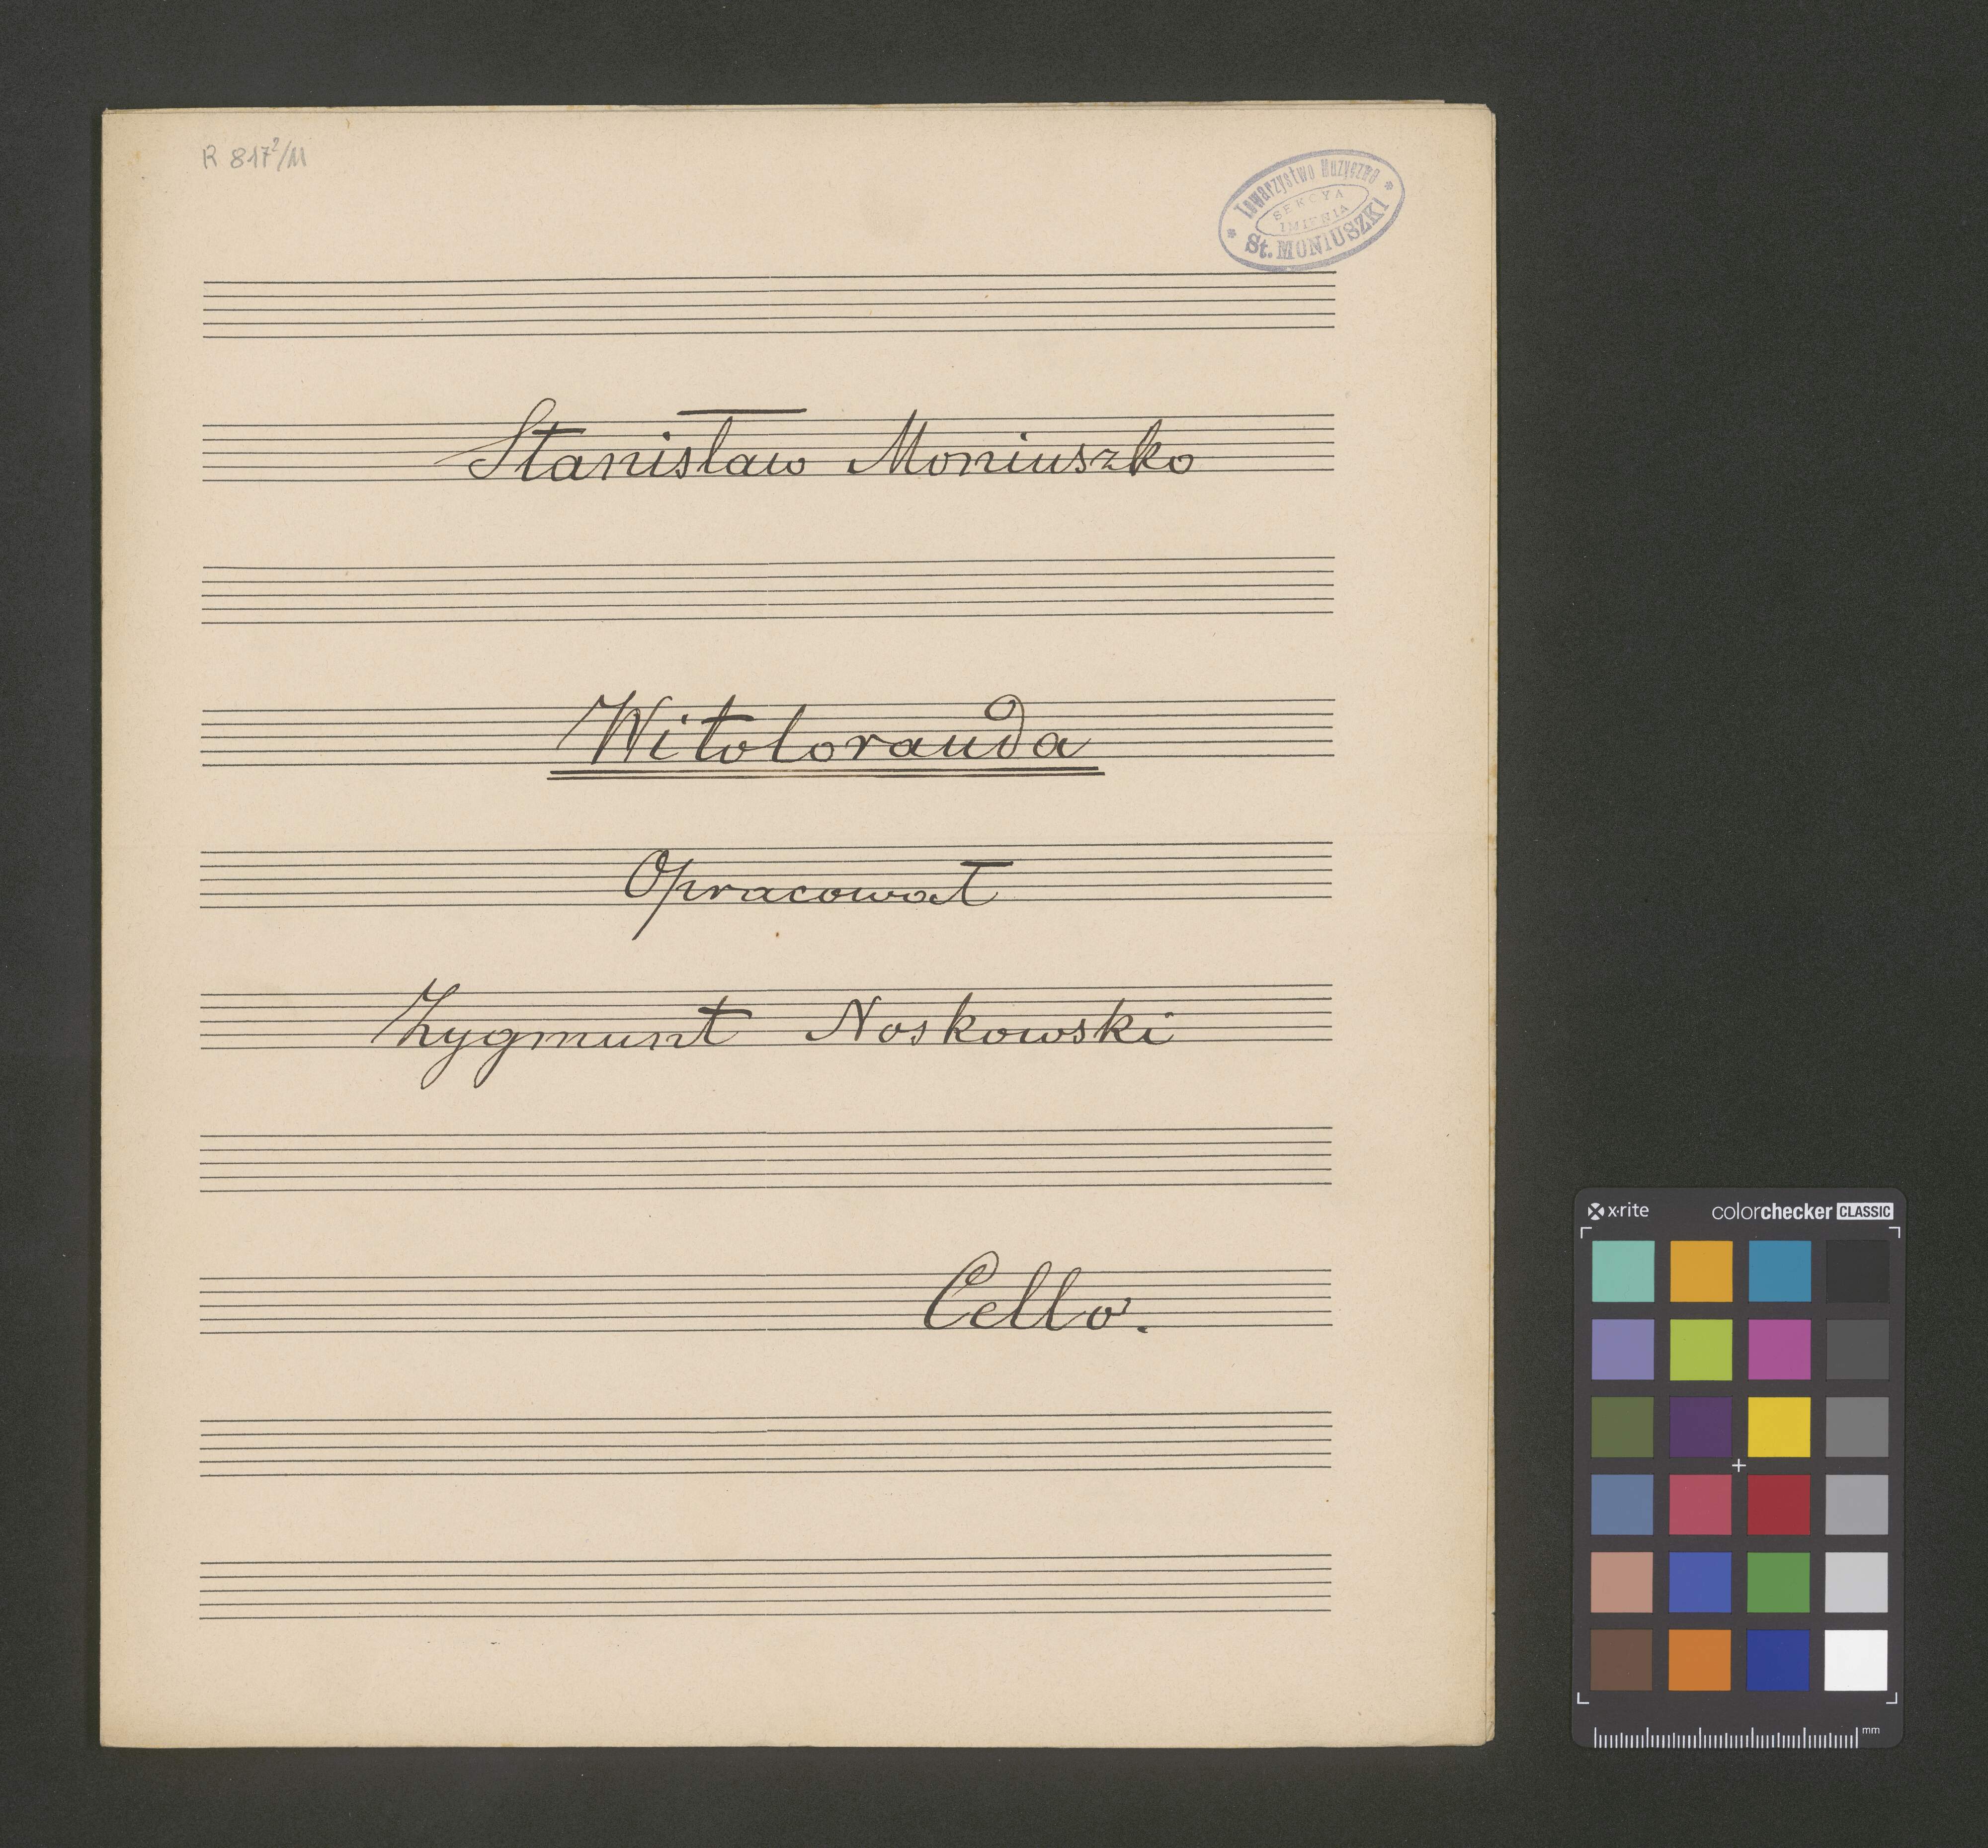 R 817²/11
Towarzystwo Muzyczne
SEKCYA
IMIENIA
St. MONIUSZKI
Stanisław Moniuszko
Witolorauda
Opracował
Zygmunt Noskowski
Cello.
x·rite colorchecker CLASSIC
mm